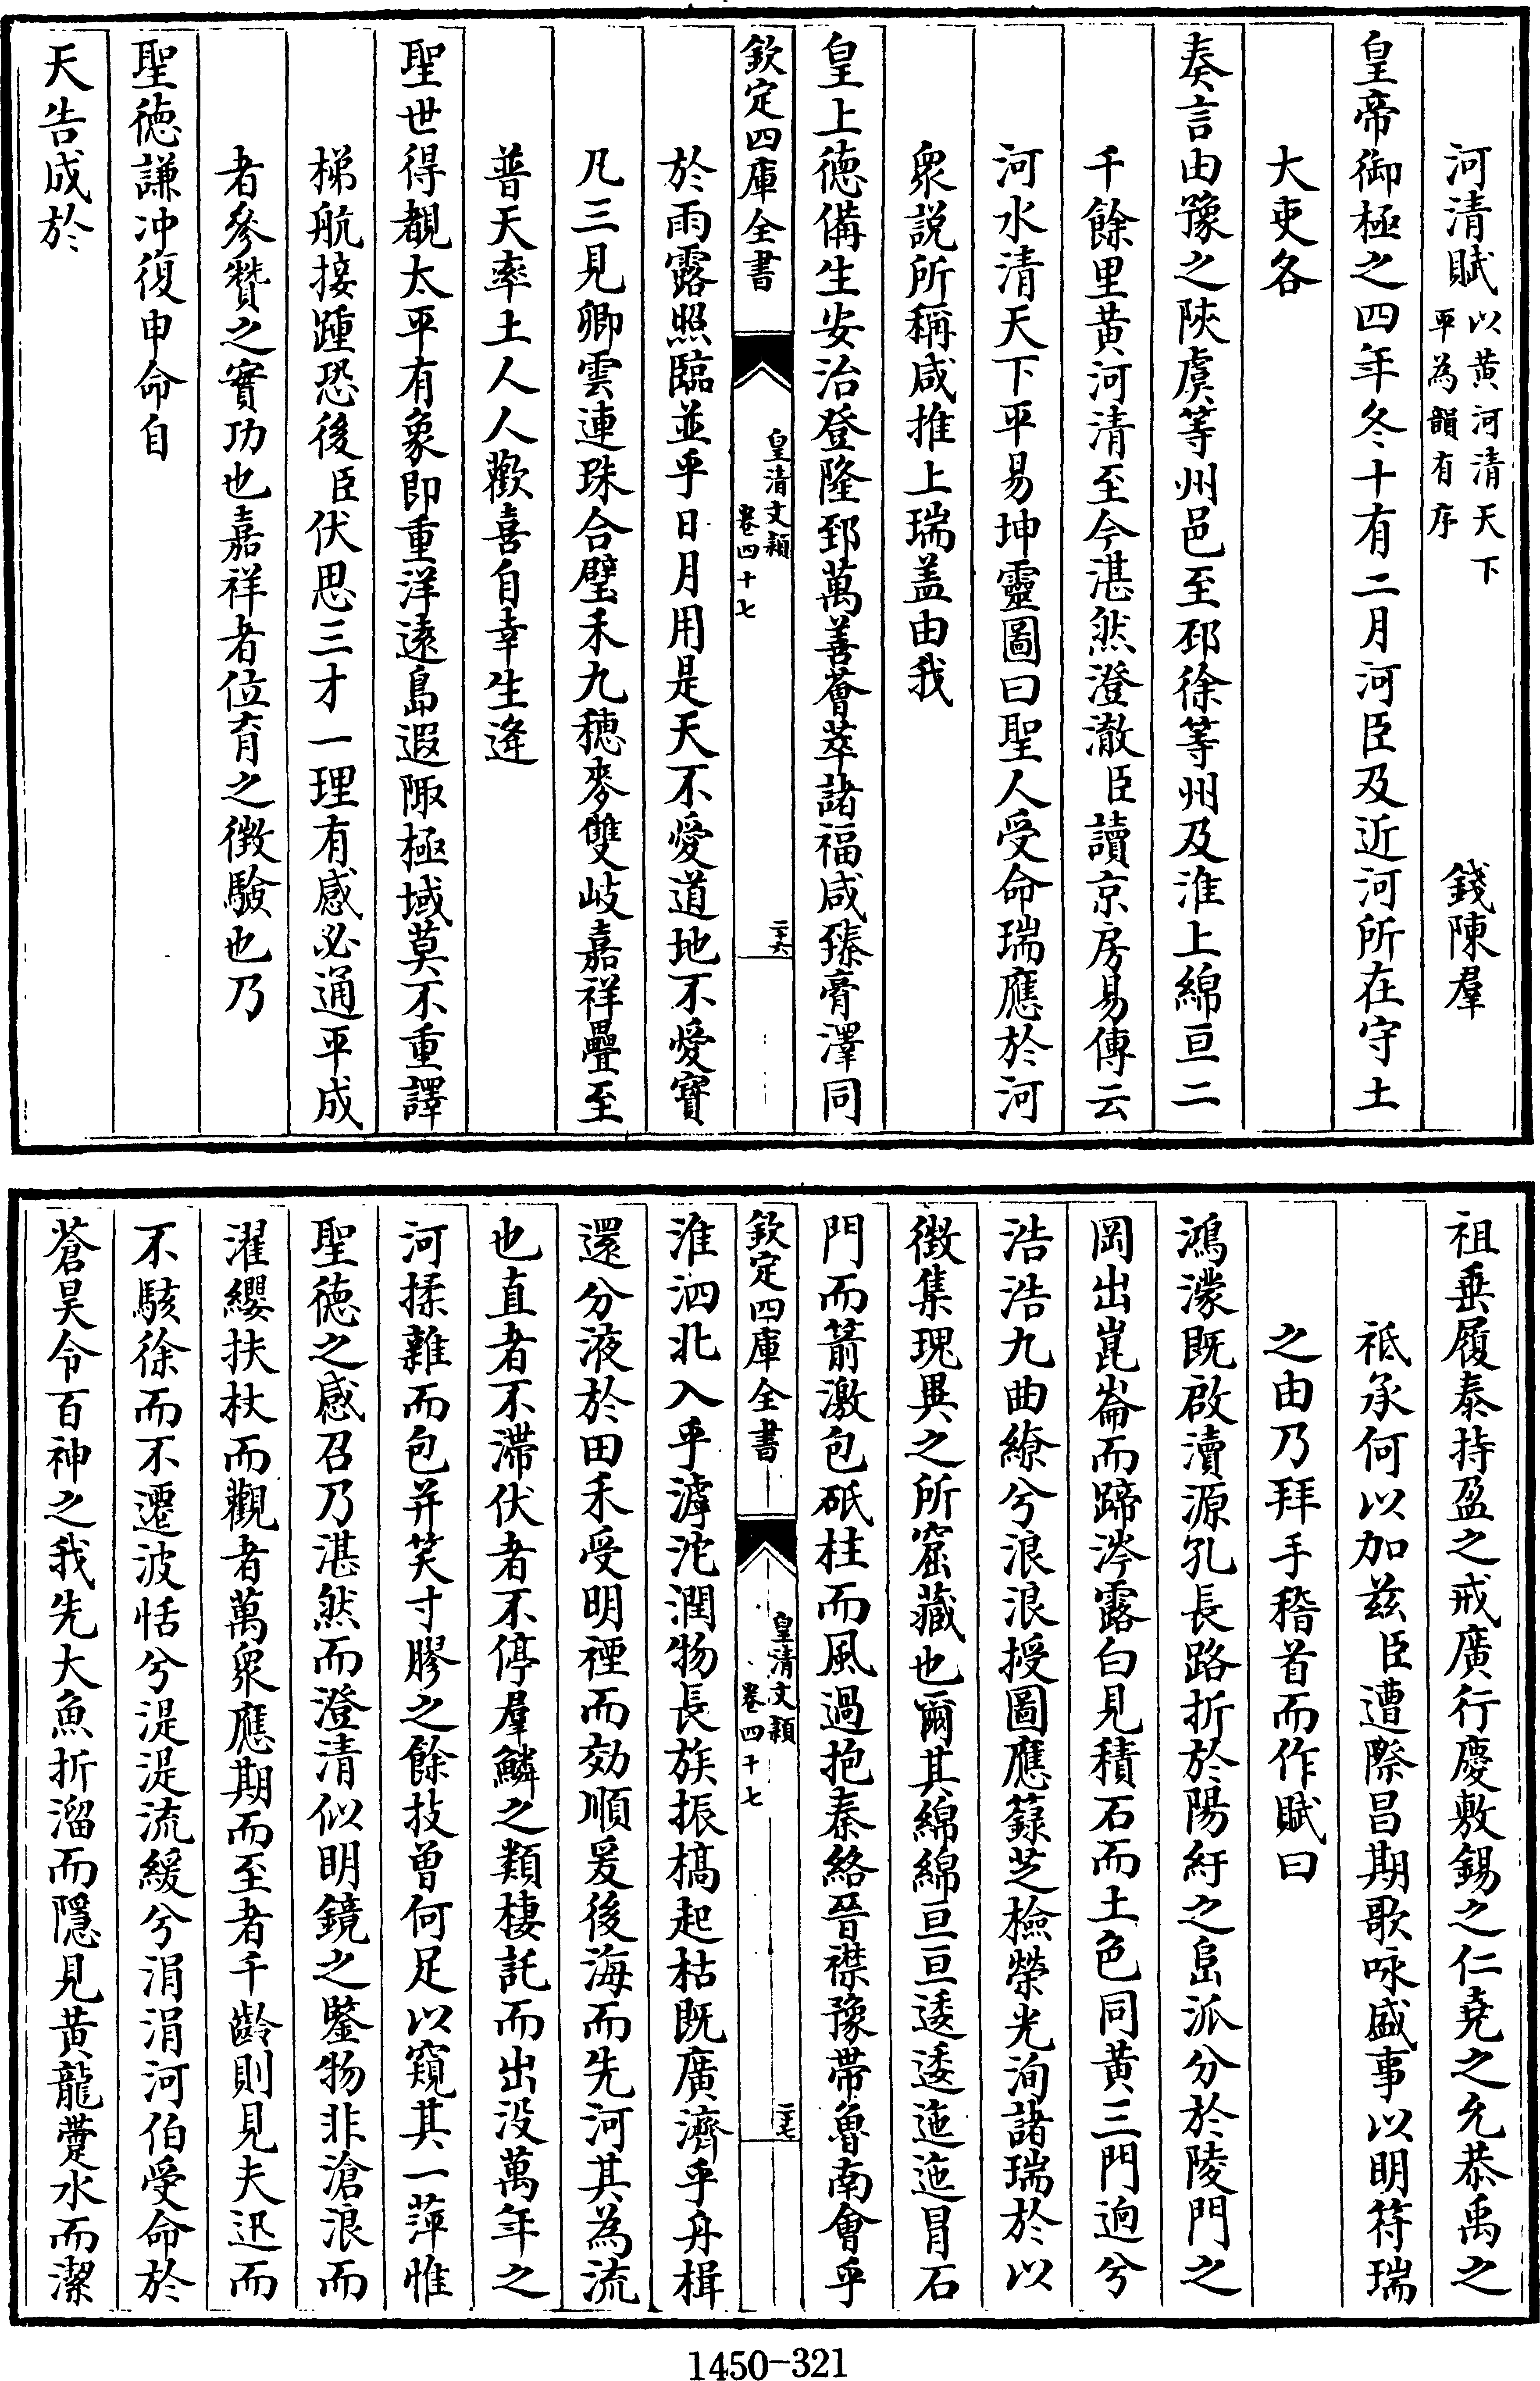 河清賦以黄河清天下平為韻有序 錢陳羣
皇帝御極之四年冬十有二月河臣及近河所在守土
大吏各
奏言由豫之陜虞等州邑至邳徐等州及淮上綿亘二
千餘里黄河清至今湛然澄澈臣讀京房易傳云
河水清天下平易坤靈圖曰聖人受命瑞應於河
衆説所稱咸推上瑞盖由我
皇上徳備生安治登隆郅萬善薈萃諸福咸臻膏澤同
欽定四庫全書 皇清文穎 卷四十七 二十六
於雨露照臨並乎日月用是天不愛道地不愛寳
凡三見卿雲連珠合璧禾九穗麥雙岐嘉祥疊至
普天率土人人歡喜自幸生逄
聖世得覩太平有象即重洋逺島遐陬極域莫不重譯
梯航接踵恐後臣伏思三才一理有感必通平成
者參贊之實功也嘉祥者位育之徴驗也乃
聖徳謙冲復申命自
天告成於
祖垂履泰持盈之戒廣行慶敷錫之仁堯之允恭禹之
祗承何以加兹臣遭際昌期歌咏盛事以明符瑞
之由乃拜手稽首而作賦曰
鴻濛既啟瀆源孔長路折於陽紆之㠀派分於陵門之
岡出崑崙而蹄涔露白見積石而土色同黄三門逈兮
浩浩九曲繚兮浪浪授圖應籙芝檢榮光洵諸瑞於以
徴集瑰異之所窟藏也爾其綿綿亘亘逶逶迤迤冒石
門而箭激包砥柱而風過抱秦絡晉襟豫帶魯南會乎
欽定四庫全書 皇清文穎 卷四十七 二十七
淮泗北入乎滹沱潤物長族振槁起枯既廣濟乎舟楫
還分液於田禾受明禋而効順爰後海而先河其為流
也直者不滯伏者不停羣鱗之類棲託而出没萬年之
河揉雜而包并笑寸膠之餘技曽何足以窺其一萍惟
聖徳之感召乃湛然而澄清似明鏡之鑒物非滄浪而
濯纓扶杖而觀者萬衆應期而至者千齡則見夫迅而
不駭徐而不遷波恬兮湜湜流緩兮涓涓河伯受命於
蒼昊令百神之我先大魚折溜而隱見黄龍躩水而潔
1450-321